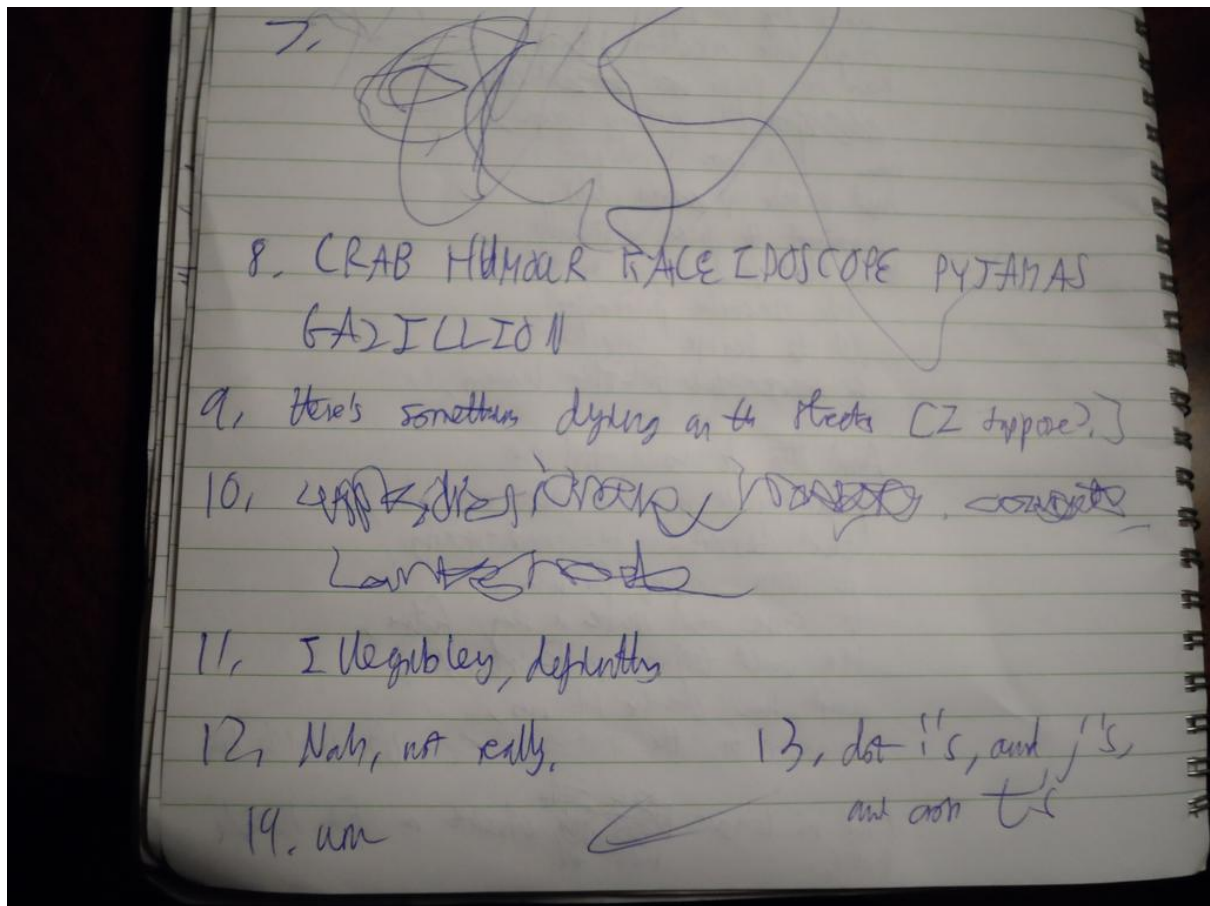 7.
8. CRAB HUMOUR KALEIDOSCOPE PYJAMAS
GAZILLION
9. Here's something dying on the streets [I suppose?]
10.
11. Illegibley, definitly
12. Nah, not really. 13. dot i's, and j's,
and cross t's
14. um